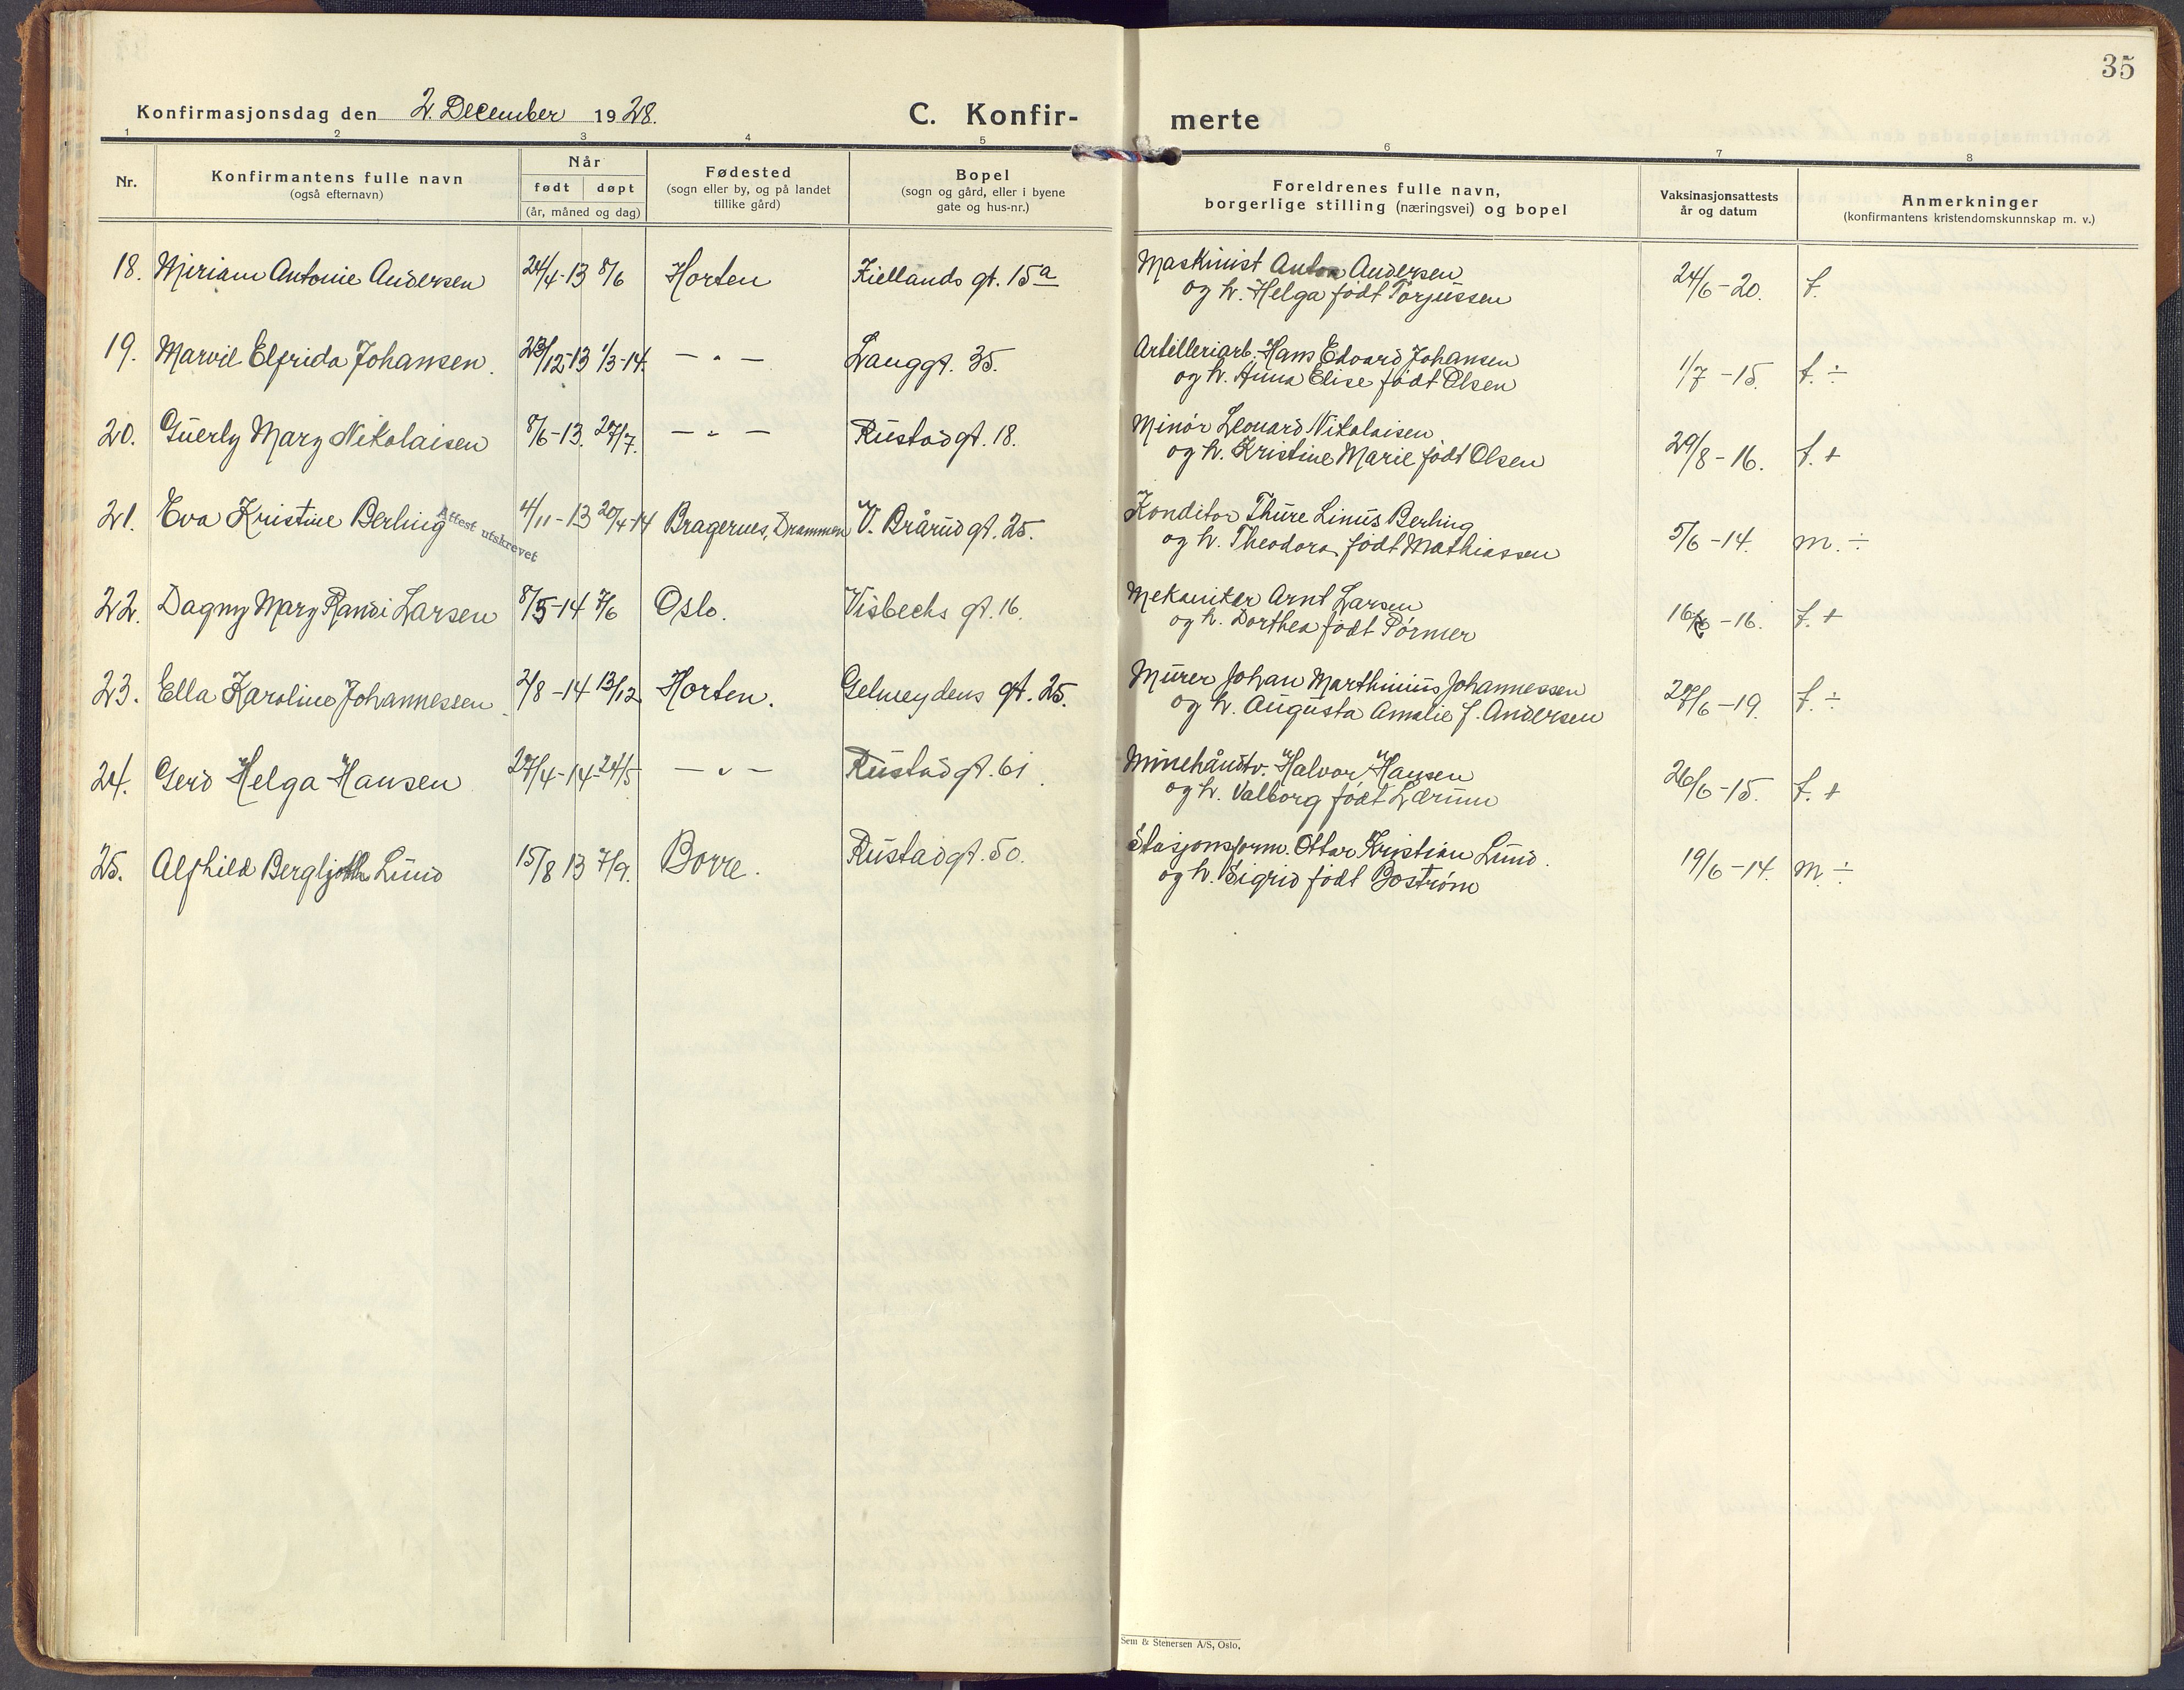 35
Konfirmasjonsdag den 2. December 1928.
C. Konfir-
merte
1 2 3 4 5 6 7 8
Nr.
Konfirmantens fulle navn
(også efternavn)
Når
født døpt
(år, måned og dag)
Fødested
(sogn eller by, og på landet
tillike gård)
Bopel
(sogn og gård, eller i byene
gate og hus-nr.)
Foreldrenes fulle navn,
borgerlige stilling (næringsvei) og bopel
Vaksinasjonsattests
år og datum
Anmerkninger
(konfirmantens kristendomskunnskap m. v.)
18. Miriam Antonie Andersen 24/4-13 8/6 Horten Kiellands gt. 15a Maskinist Anton Andersen 24/6-20. f.
og h. Helga født Torjussen
19. Marvil Elfrida Johansen. 23/12-13 1/3-14. — „ — Langgt. 35. Artilleriarb. Hans Edvard Johansen 1/7-15. f. ÷
og h. Anna Elise født Olsen
20. Guerly Mary Nikolaisen 8/6-13. 27/7. — „ — Rustadgt. 18. Minör Leonard Nikolaisen 29/8-16. f. +
og h. Kristine Marie født Olsen
21. Eva Kristine Berling Attest utskrevet 4/11-13 20/4-14 Bragernes, Drammen V. Brårudgt. 25. Konditor Thure Linus Berling 5/6-14. m. ÷
og h. Theodora født Mathiassen
22. Dagny Mary Randi Larsen 8/5-14 7/6 Oslo. Visbechs gt. 16. Mekaniker Arnt Larsen 16/6-16. f. +
og h. Dorthea født Pörmer
23. Ella Karoline Johannessen 2/8-14 13/12 Horten. Gelmeydens gt. 25. Murer Johan Marthinius Johannessen 27/6-19. f. ÷
og h. Augusta Amalie f. Andersen
24. Gerd Helga Hansen 27/4-14-24/5 — „ — Rustadgt. 61 Minehåndv. Halvor Hansen 26/6-15. f. +
og h. Valborg født Lærum
25. Alfhild Bergljoth Lund 15/8 13 7/9. Borre. Rustadgt. 50. Stasjonsform. Ottar Kristian Lund. 19/6-14. m. ÷
og h. Sigrid født Boström
Sem & Stenersen A/S, Oslo.